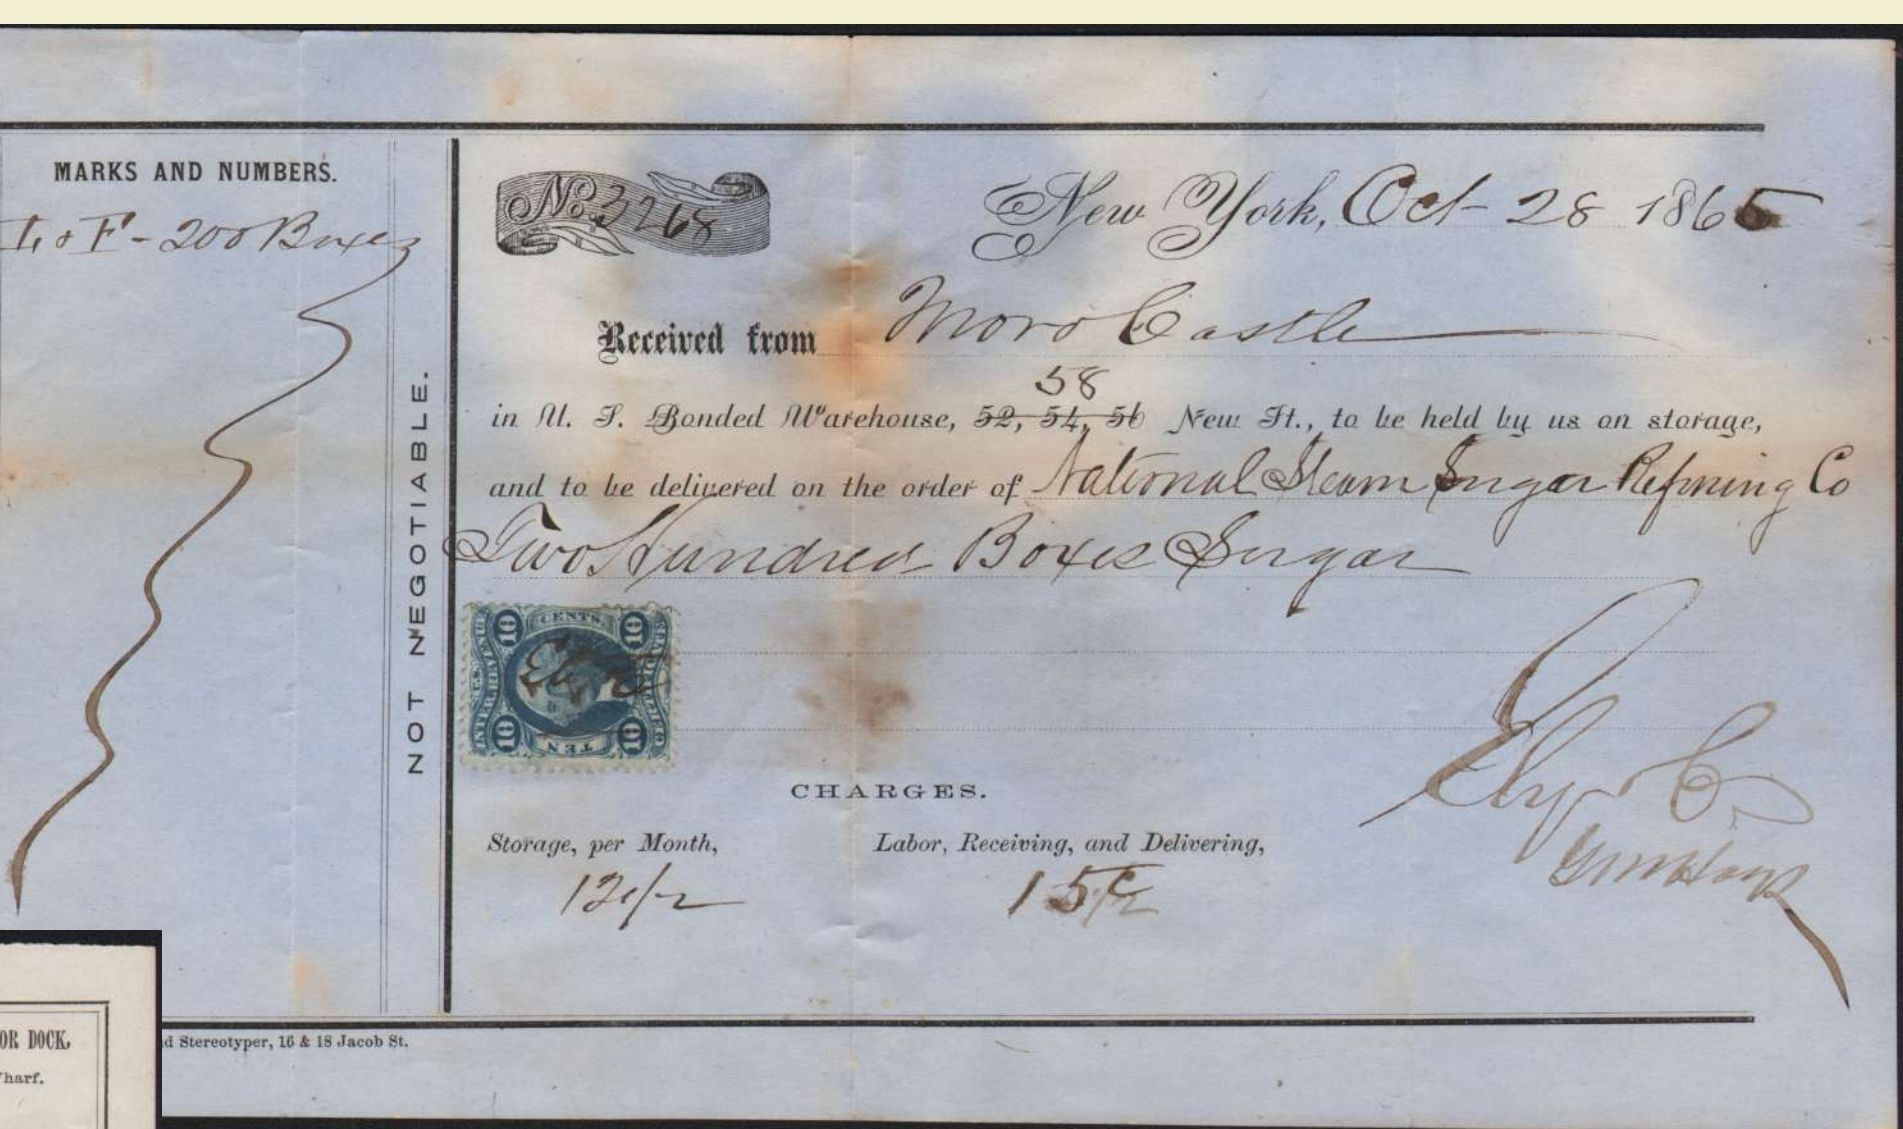 MARKS AND NUMBERS.
200 Boxes
NOT NEGOTIABLE.
No. 3268
New York, Oct 28 1865
Received from Moro Castle
58
in U. S. Bonded Warehouse, 52, 54, 56 New St., to be held by us on storage,
and to be delivered on the order of National Steam Sugar Refining Co
Two Hundred Boxes Sugar
10 CENTS. 10
INTER. REVENUE
10 TEN 10
Ely & Co
CHARGES.
Storage, per Month,
Labor, Receiving, and Delivering,
12 1/2
15 c
d Stereotyper, 16 & 18 Jacob St.
OR DOCK,
harf.